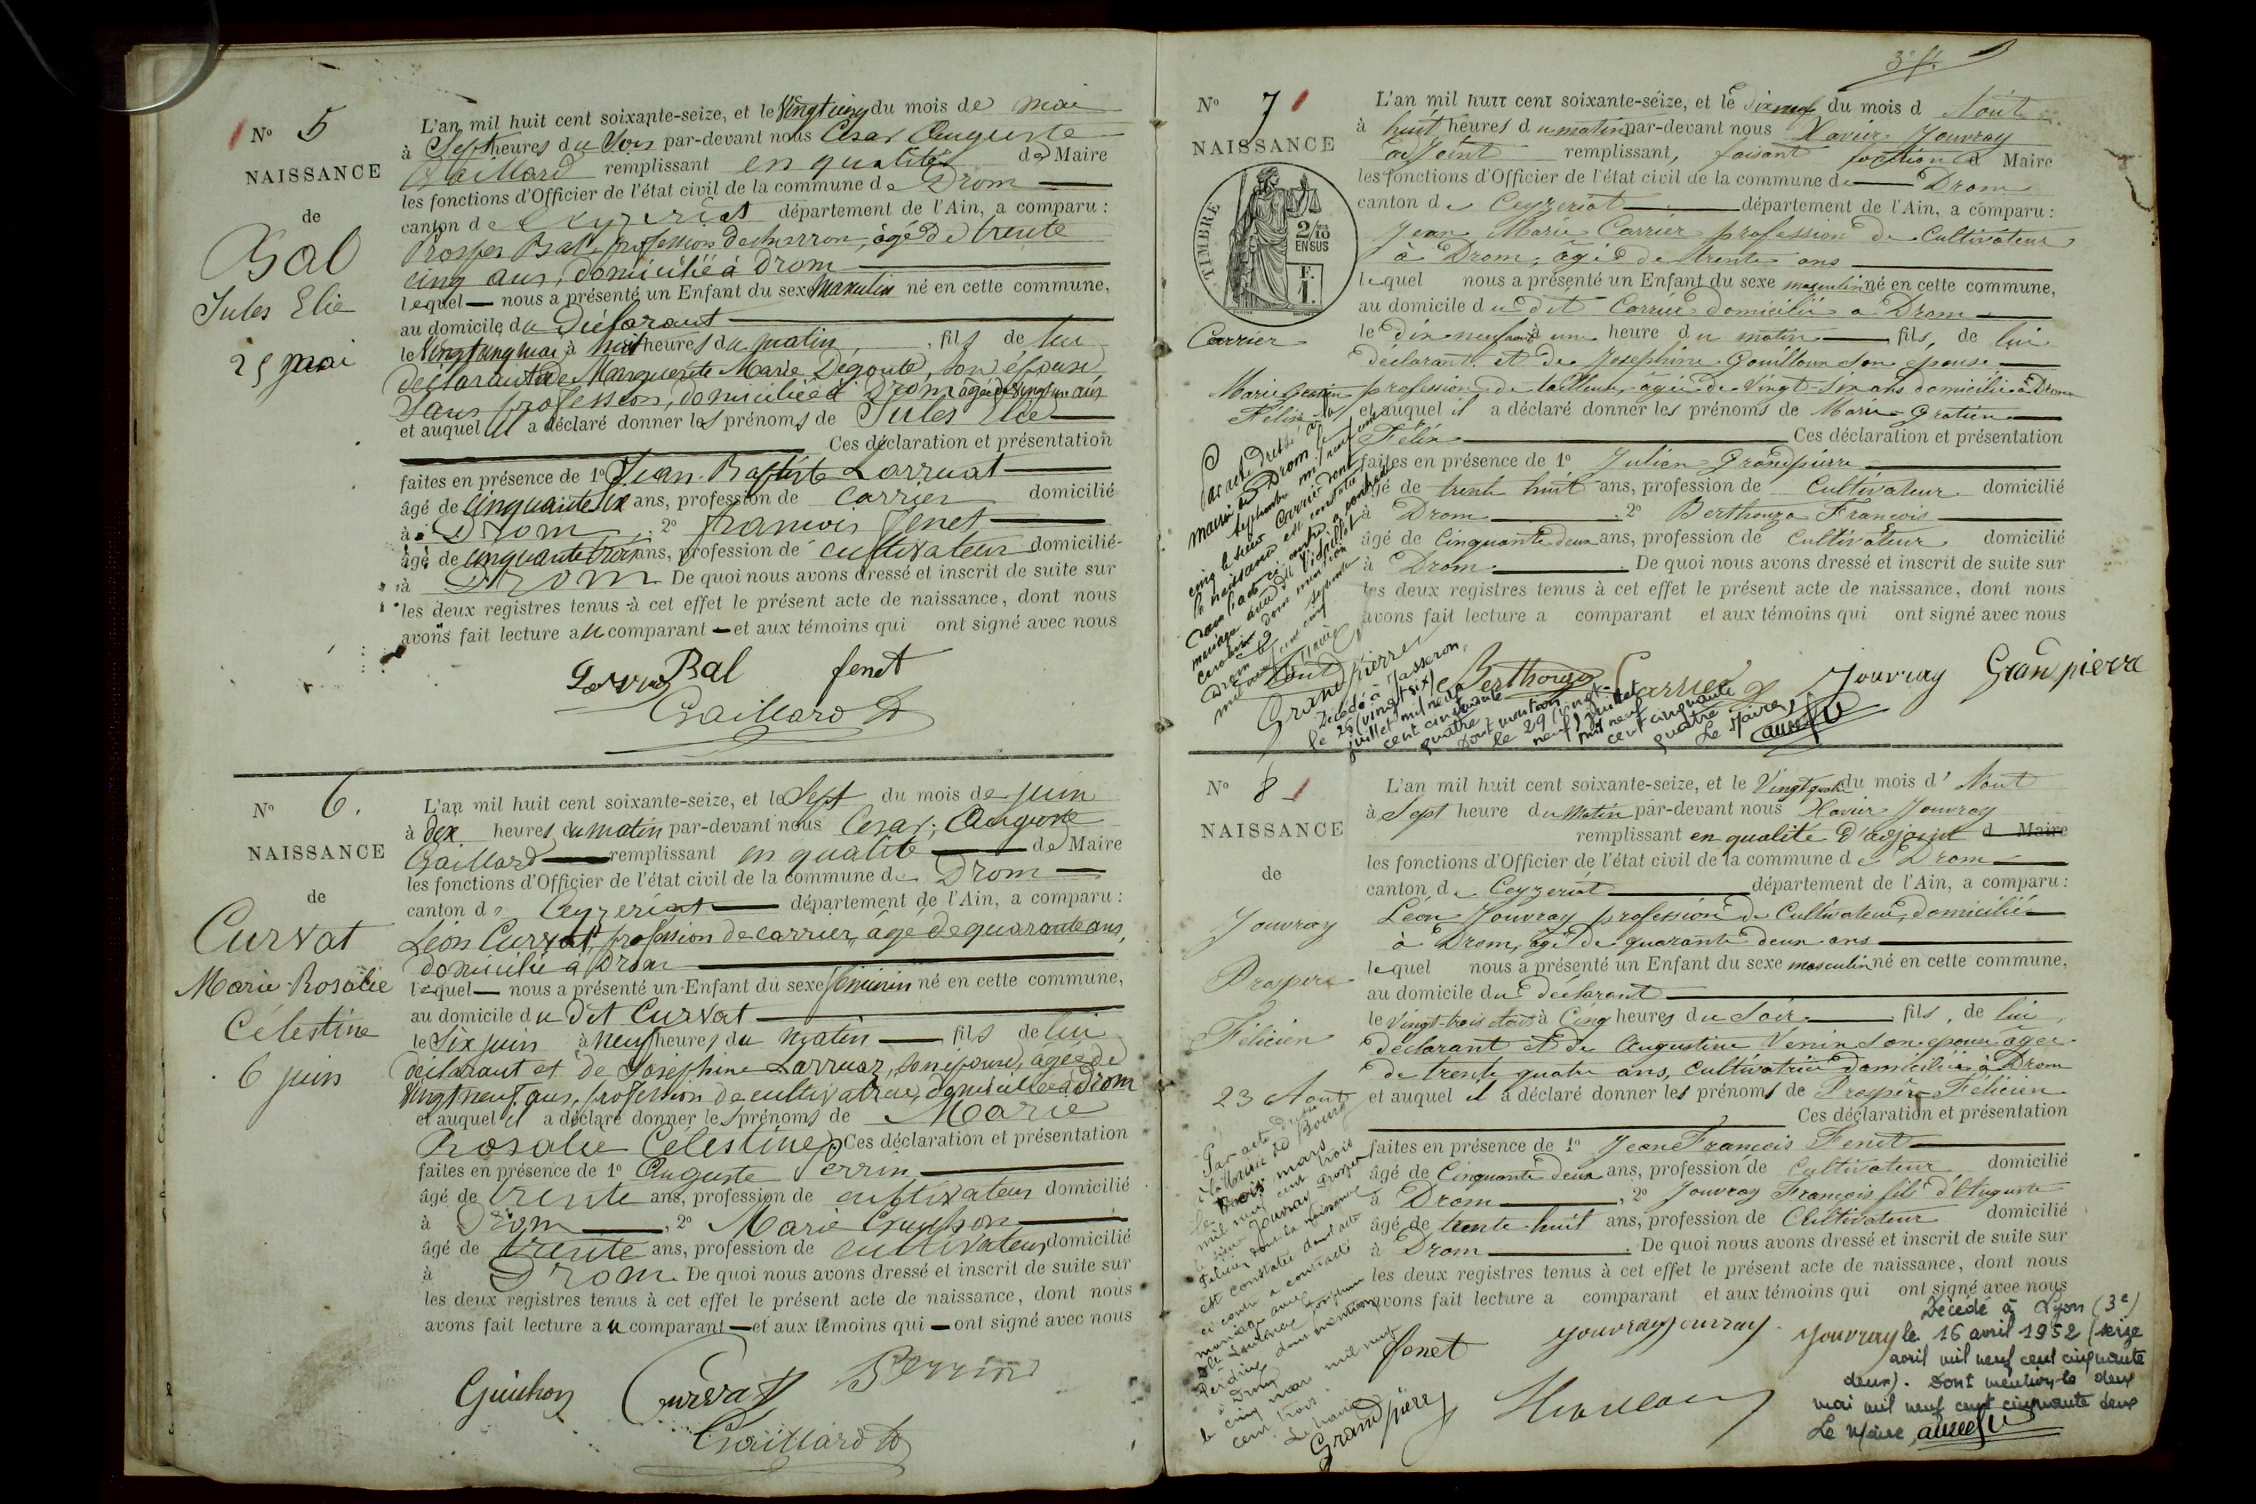 N° 5
NAISSANCE
de
Bal
Jules Elie
25 mai
L'an mil huit cent soixante-seize, et le Vingt cinq du mois de mai
à Sept heures du Soir par-devant nous César Auguste
Gaillard remplissant en qualité de Maire
les fonctions d'Officier de l'état civil de la commune de Drom
canton de Ceyzeriat département de l'Ain, a comparu :
Prosper Bal, profession de charron, âgé de trente
cinq ans, domicilié à Drom
lequel nous a présenté un Enfant du sexe Masculin né en cette commune,
au domicile du Déclarant
le Vingt cinq mai à huit heures du matin, fils de lui
déclarant et de Marguerite Marie Degoute, son épouse,
Sans profession, domiciliée à Drom âgée de Vingt un ans
et auquel il a déclaré donner les prénoms de Jules Elie
Ces déclaration et présentation
faites en présence de 1° Jean Baptiste Larruat
âgé de cinquante six ans, profession de carrier domicilié
à Drom, 2° francois fenet
âgé de cinquante trois ans, profession de cultivateur domicilié
à Drom De quoi nous avons dressé et inscrit de suite sur
les deux registres tenus à cet effet le présent acte de naissance, dont nous
avons fait lecture au comparant et aux témoins qui ont signé avec nous
Bal fenet
Gaillard
N° 6.
NAISSANCE
de
Curvat
Marie Rosalie
Célestine
6 juin
L'an mil huit cent soixante-seize, et le Sept du mois de juin
à dix heures du matin par-devant nous César, Auguste
Gaillard remplissant en qualité de Maire
les fonctions d'Officier de l'état civil de la commune de Drom
canton de Ceyzeriat département de l'Ain, a comparu :
Léon Curvat, profession de carrier, âgé de quarante ans,
domicilié à Drom
lequel nous a présenté un Enfant du sexe féminin né en cette commune,
au domicile du dit Curvat
le Six juin à neuf heures du matin fils de lui
déclarant et de Joséphine Larruaz, son épouse, âgée de
Vingt neuf ans, profession de cultivatrice, domiciliée à Drom
et auquel il a déclaré donner les prénoms de Marie
Rosalie Célestine Ces déclaration et présentation
faites en présence de 1° Auguste Perrin
âgé de trente ans, profession de cultivateur domicilié
à Drom, 2° Marie
âgé de trente ans, profession de cultivateur domicilié
à Drom De quoi nous avons dressé et inscrit de suite sur
les deux registres tenus à cet effet le présent acte de naissance, dont nous
avons fait lecture au comparant et aux témoins qui ont signé avec nous
Guichon Curvat Perrin
Gaillard
N° 7
NAISSANCE
TIMBRE
2/10
EN SUS
F.
1.
Carrier
Marie Gratien
Félix
L'an mil huit cent soixante-seize, et le dix neuf du mois d Août
à huit heures du matin par-devant nous Xavier Jouvray
adjoint remplissant, faisant fonction d Maire
les fonctions d'Officier de l'état civil de la commune de Drom
canton de Ceyzeriat département de l'Ain, a comparu :
Jean Marie Carrier profession de Cultivateur
à Drom, âgé de trente ans
lequel nous a présenté un Enfant du sexe masculin né en cette commune,
au domicile du dit Carrier domicilié à Drom
le dix neuf août à une heure du matin fils, de lui
déclarant et de Joséphine Gouilloux son épouse
profession de tailleuse, âgée de Vingt-six ans domiciliée à Drom
et auquel il a déclaré donner les prénoms de Marie Gratien
Félix Ces déclaration et présentation
faites en présence de 1° Julien Grandpierre
âgé de trente huit ans, profession de Cultivateur domicilié
à Drom, 2° Berthouze Francois
âgé de Cinquante deux ans, profession de Cultivateur domicilié
à Drom De quoi nous avons dressé et inscrit de suite sur
les deux registres tenus à cet effet le présent acte de naissance, dont nous
avons fait lecture a comparant et aux témoins qui ont signé avec nous
Berthouze Carrier Jouvray Grandpierre
Par acte dressé à la
mairie de Drom le
septembre mil neuf cent
cinq le sieur Carrier dont
la naissance est constatée
dans l'acte ci-contre a contracté
mariage avec
dont mention
Grandpierre
Décédé à Jasseron,
le 26 (vingt six)
juillet mil neuf
cent cinquante
quatre
Dont mention
le 29 (vingt-
neuf) juillet
mil neuf
cent cinquante
quatre
Le Maire,
N° 8
NAISSANCE
de
Jouvray
Prospère
Félicien
23 Août
L'an mil huit cent soixante-seize, et le Vingt quatre du mois d' Août
à Sept heure du Matin par-devant nous Xavier Jouvray
remplissant en qualité d'adjoint d Maire
les fonctions d'Officier de l'état civil de la commune de Drom
canton de Ceyzeriat département de l'Ain, a comparu :
Léon Jouvray profession de Cultivateur, domicilié
à Drom, âgé de quarante deux ans
lequel nous a présenté un Enfant du sexe masculin né en cette commune,
au domicile du déclarant
le Vingt-trois Août à Cinq heures du Soir fils, de lui
déclarant et de Augustine Venin son épouse âgée
de trente quatre ans, cultivatrice domiciliée à Drom
et auquel il a déclaré donner les prénoms de Prospère Félicien
Ces déclaration et présentation
faites en présence de 1° Jean François Fenet
âgé de Cinquante deux ans, profession de Cultivateur domicilié
à Drom, 2° Jouvray François fils d'Auguste
âgé de trente-huit ans, profession de Cultivateur domicilié
à Drom De quoi nous avons dressé et inscrit de suite sur
les deux registres tenus à cet effet le présent acte de naissance, dont nous
avons fait lecture a comparant et aux témoins qui ont signé avec nous
fenet Jouvray Jouvray
Par acte
à la Mairie de Bourg
le trois mars
mil neuf cent trois
le sieur Jouvray Prosper
Félicien dont la naissance
est constatée dans l'acte
ci contre a contracté
mariage avec
dont mention
à Drom
le cinq mars mil neuf
cent trois.
Le Maire
Grandpierre
Décédé à Lyon (3e)
le 16 avril 1952 (seize
avril mil neuf cent cinquante
deux). Dont mention le deux
mai mil neuf cent cinquante deux
Le Maire,